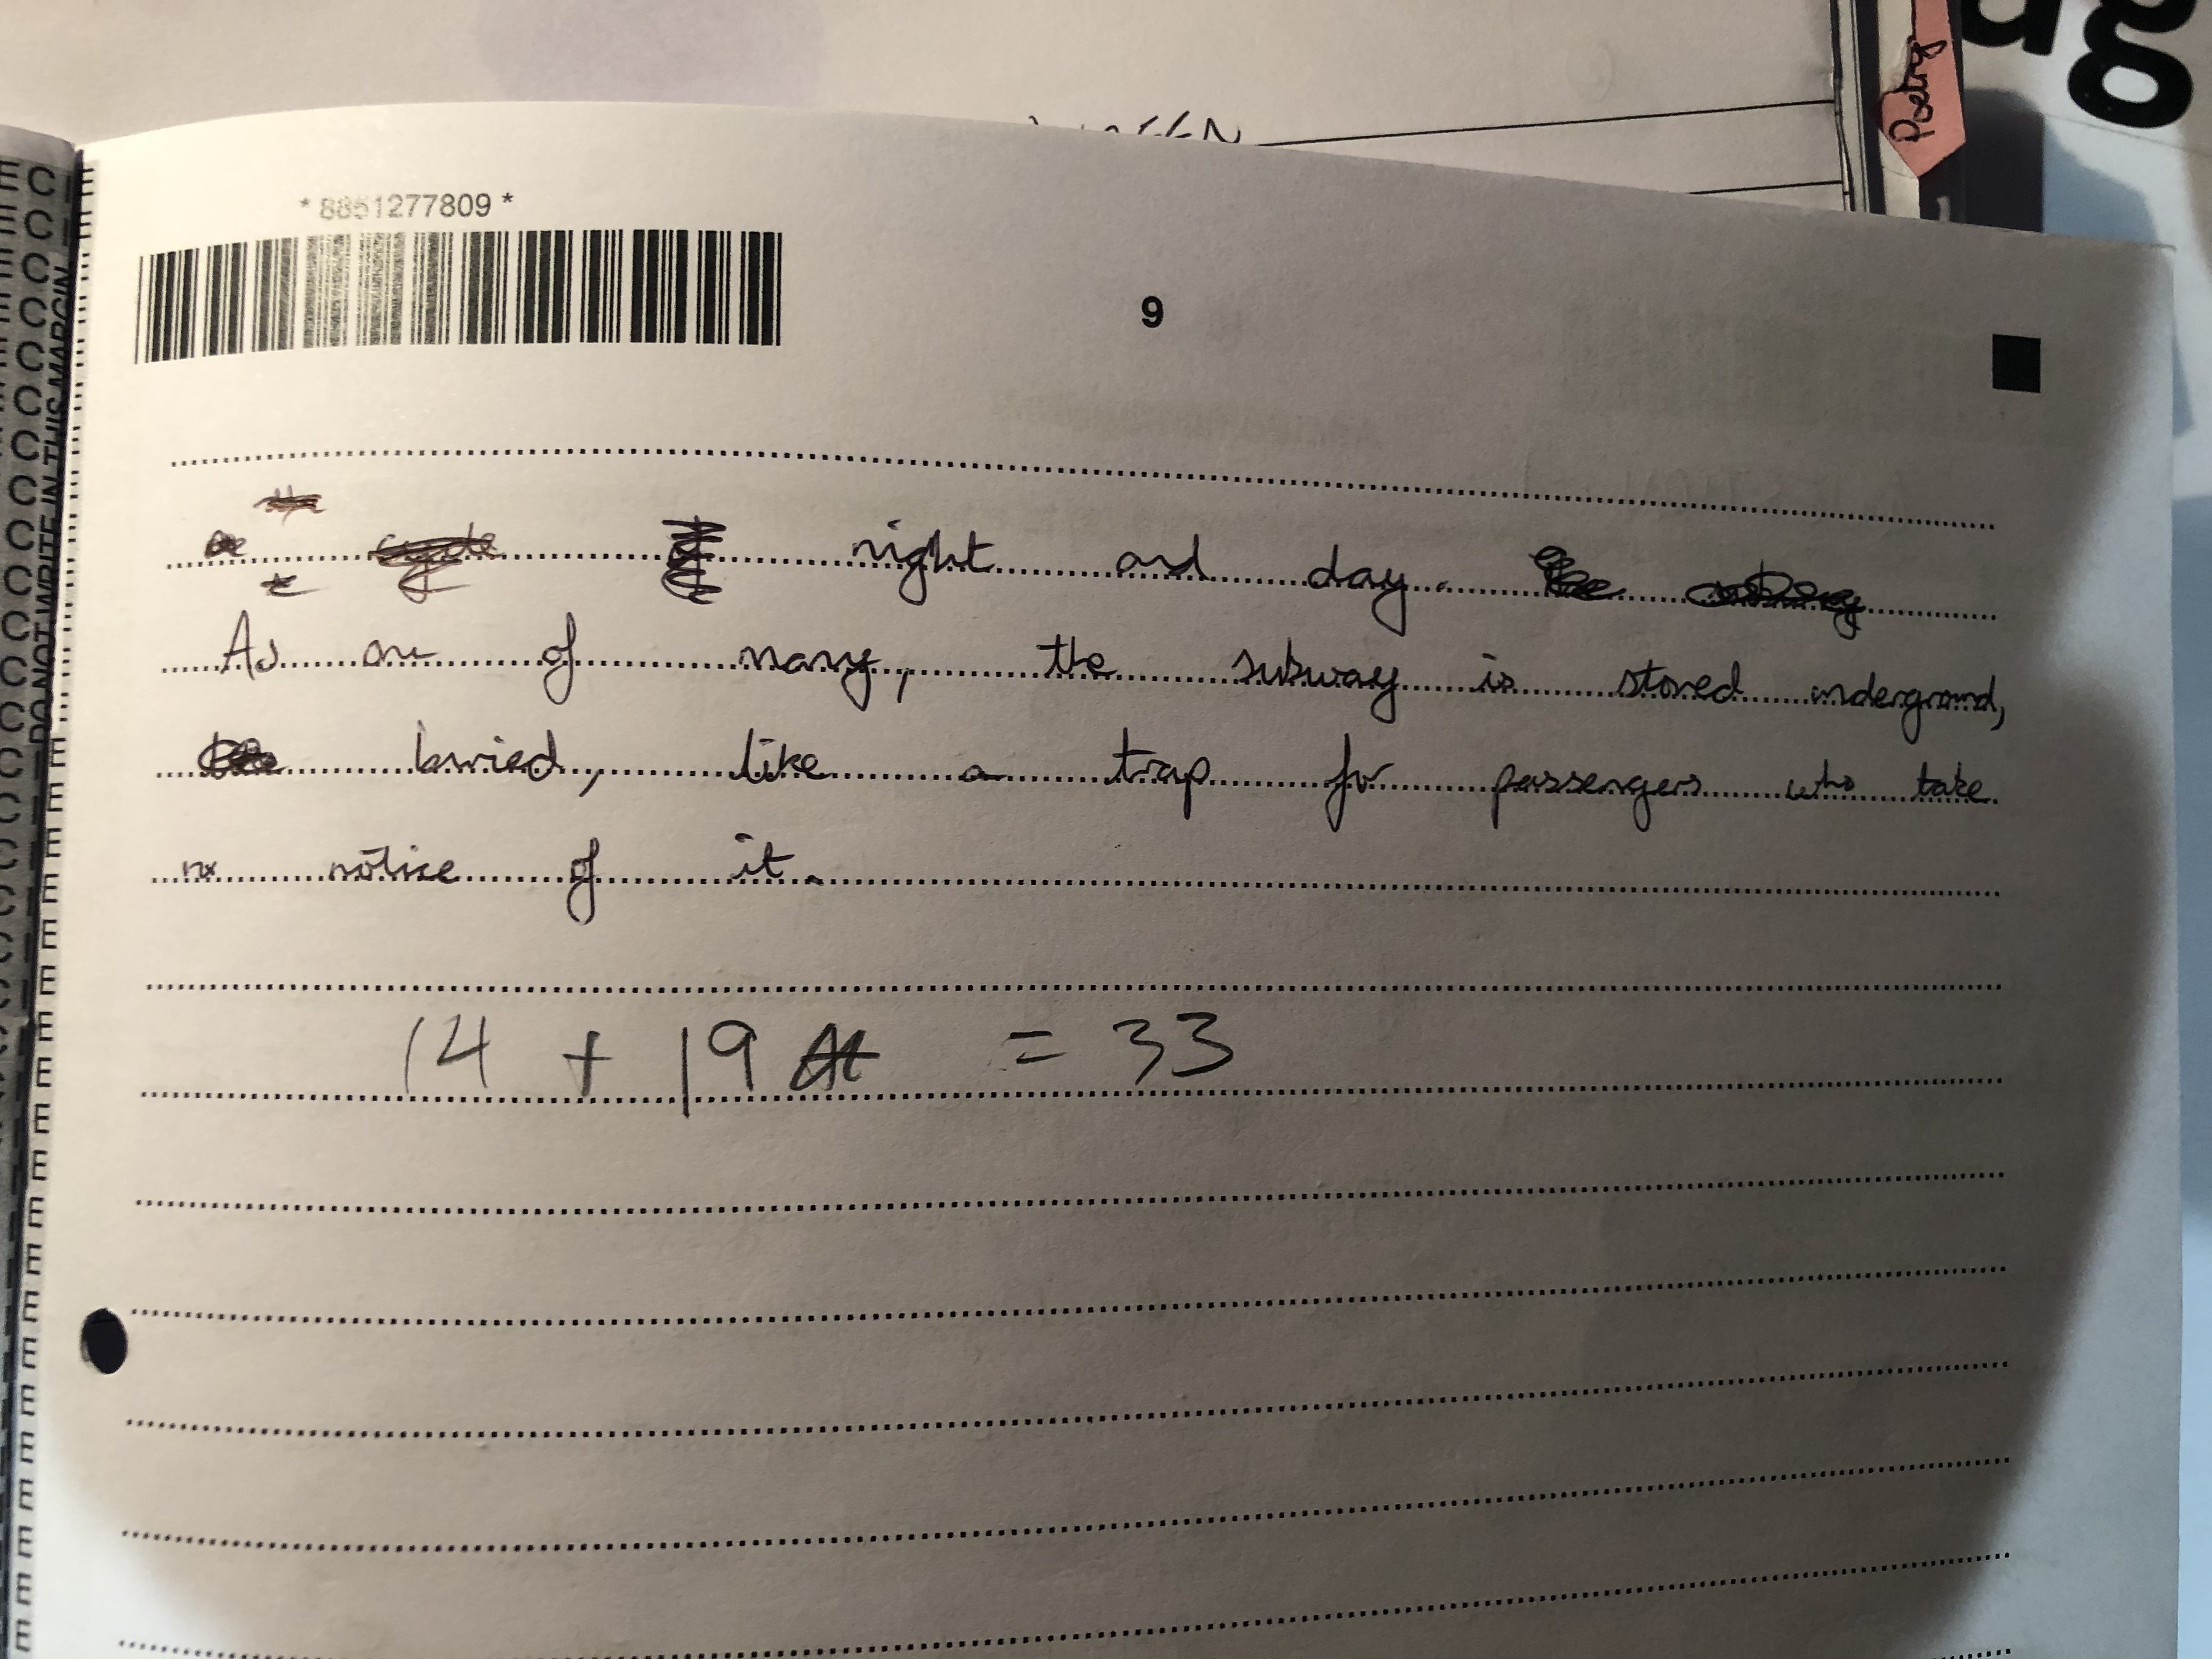 DO NOT WRITE IN THIS MARGIN
* 8851277809 *
9
night and day.
As one of many, the subway is stored underground,
buried, like a trap for passengers who take
no notice of it.
14 + 19 = 33
Poetry